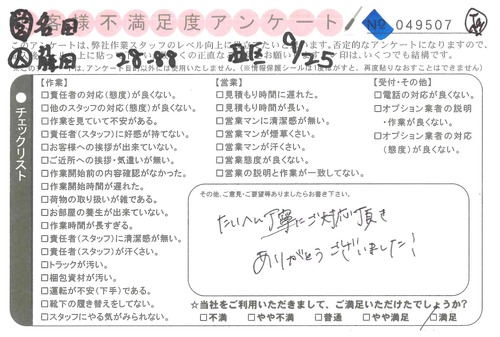 お客様不満足度アンケート
№ 049507
このアンケートは、弊社作業スタッフのレベル向上に
28-88
西区 9/25
チェックリスト
【作業】
□責任者の対応(態度)が良くない。
□他のスタッフの対応(態度)が良くない。
□作業を見ていて不安がある。
□責任者(スタッフ)に好感が持てない。
□お客様への挨拶が出来ていない。
□ご近所への挨拶・気遣いが無い。
□作業開始前の内容確認がなかった。
□作業開始時間が遅れた。
□荷物の取り扱いが雑である。
□お部屋の養生が出来ていない。
□作業時間が長すぎる。
□責任者(スタッフ)に清潔感が無い。
□責任者(スタッフ)が汗くさい。
□トラックが汚い。
□梱包資材が汚い。
□運転が不安(下手)である。
□靴下の履き替えをしてない。
□スタッフにやる気がみられない。
【営業】
□見積もり時間に遅れた。
□見積もり時間が長い。
□営業マンに清潔感が無い。
□営業マンが煙草くさい。
□営業マンが汗くさい。
□営業態度が良くない。
□営業の説明と作業が一致してない。
【受付・その他】
□電話の対応が良くない。
□オプション業者の説明
・作業が良くない。
□オプション業者の対応
(態度)が良くない。
その他、ご意見・ご要望等ありましたらお書き下さい。
たいへん丁寧にご対応頂き
ありがとうございました!
☆当社をご利用いただきまして、ご満足いただけたでしょうか?
□不満 □やや不満 □普通 □やや満足 □満足